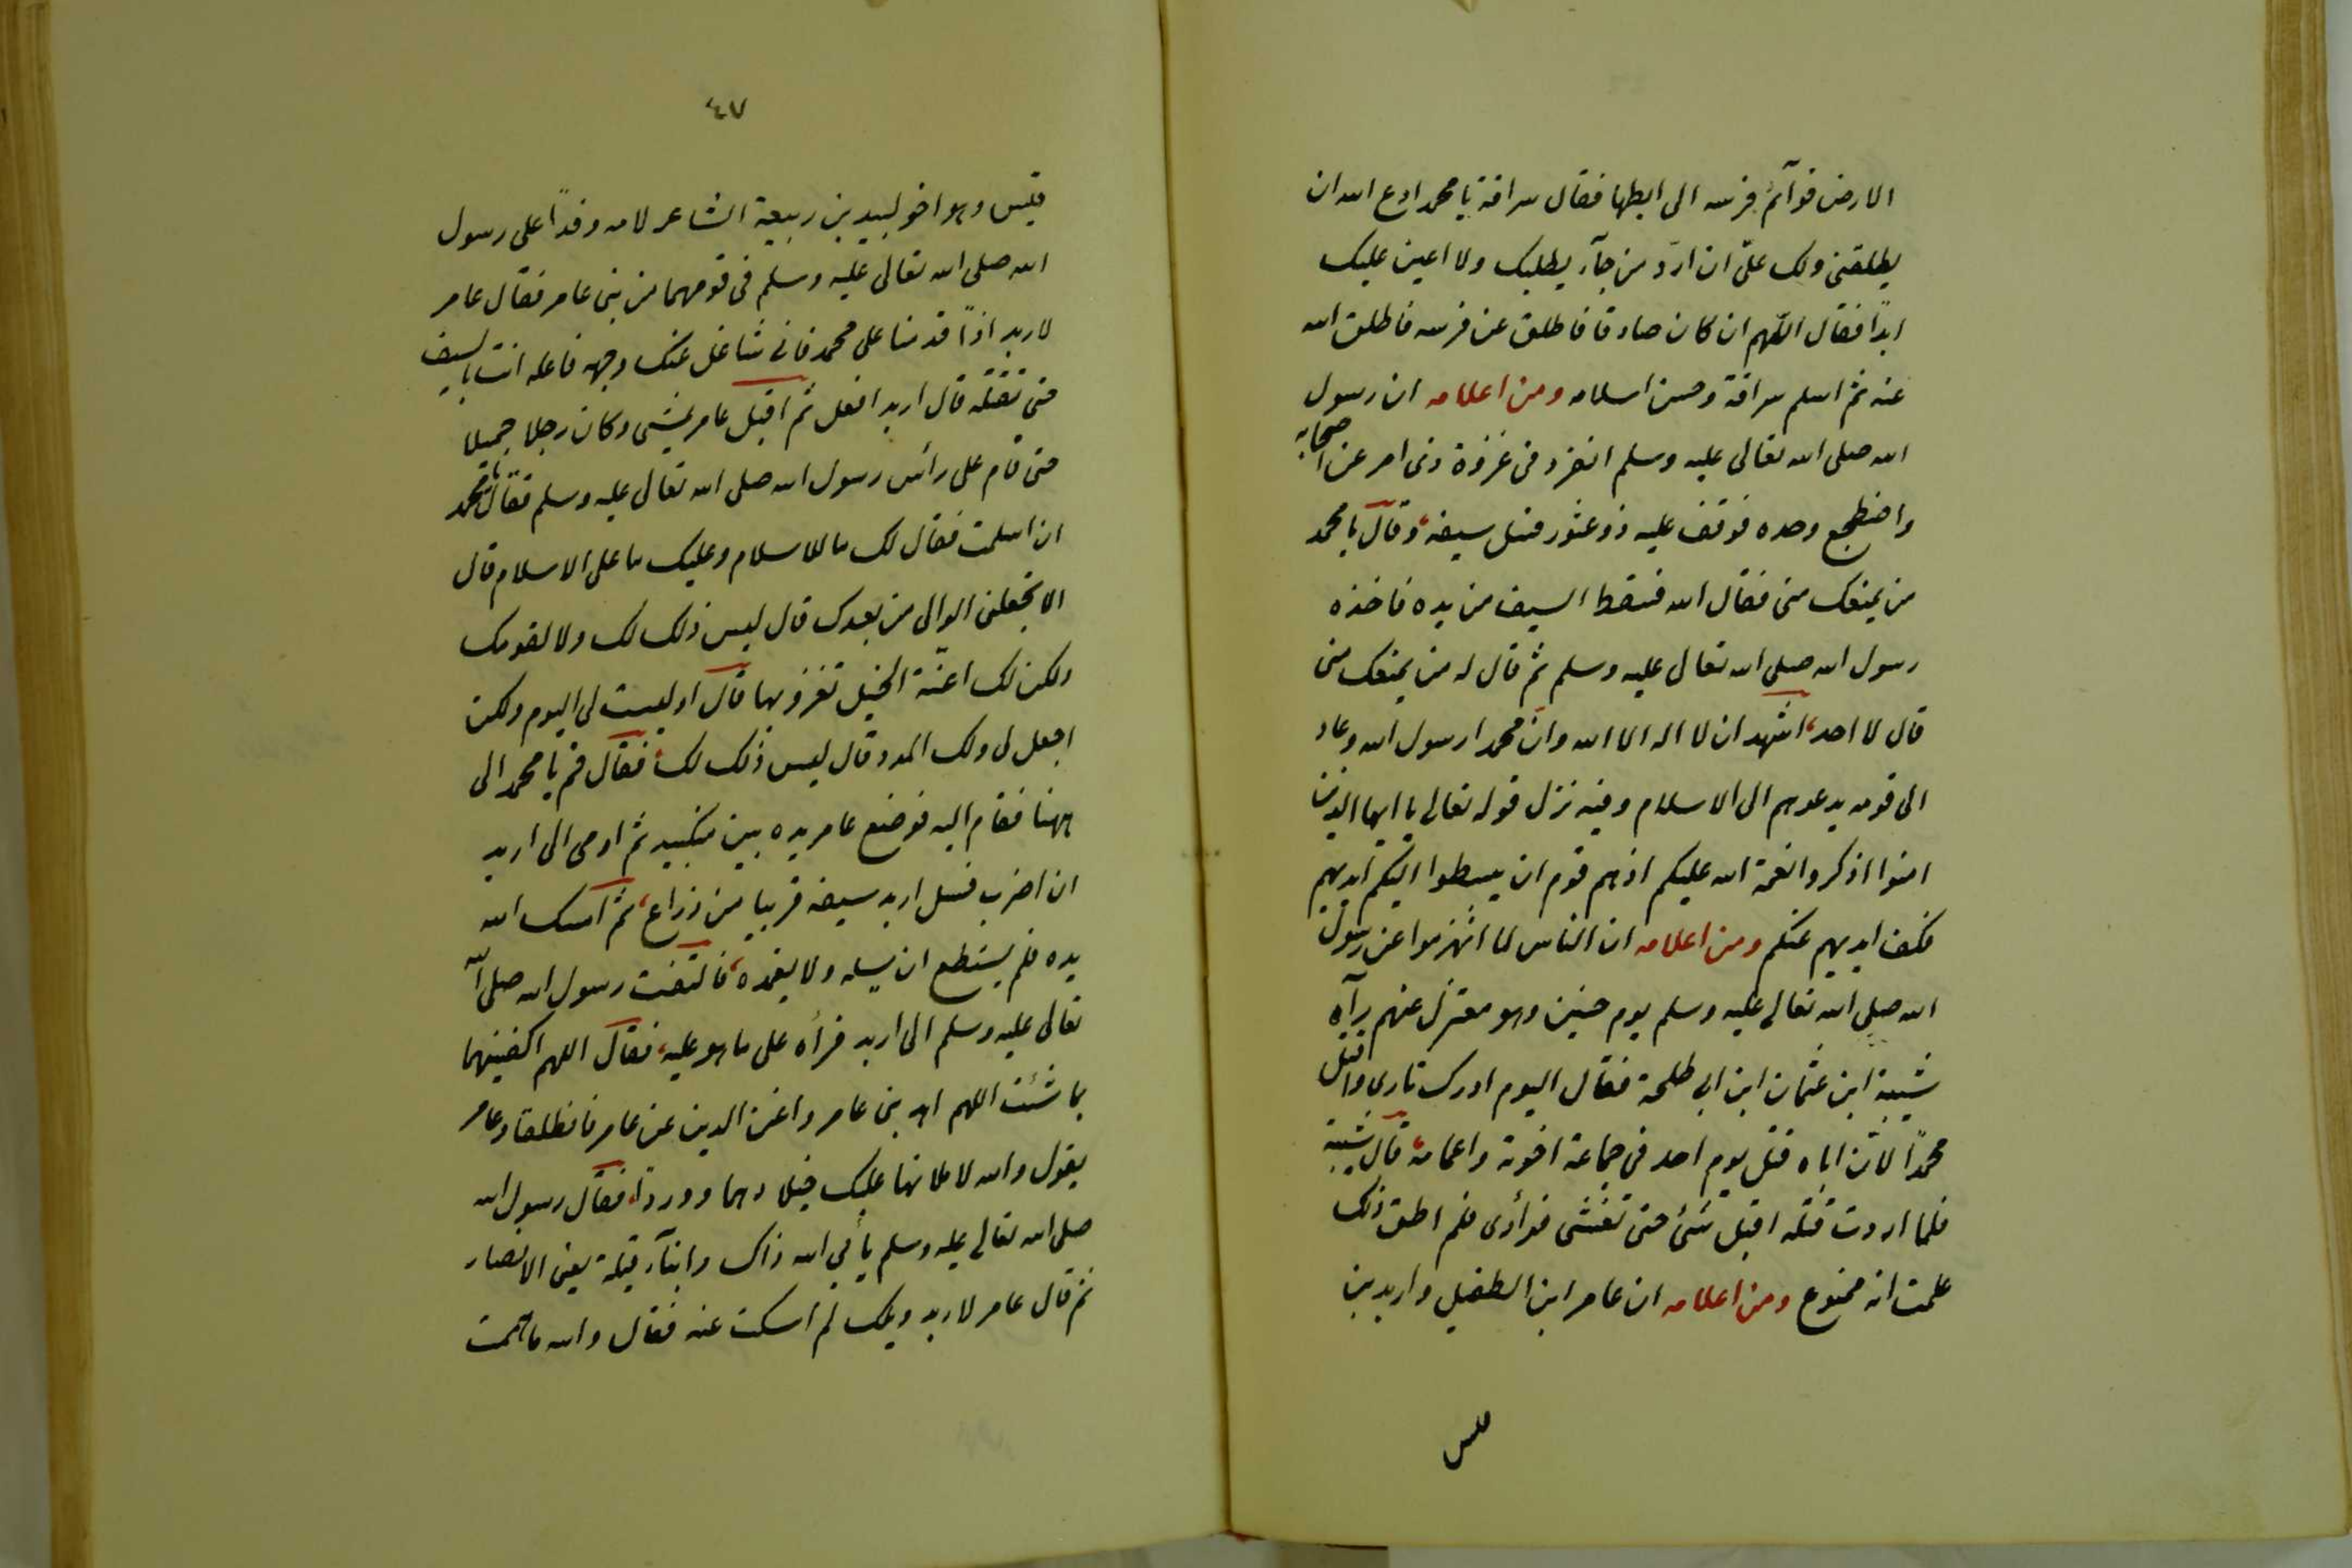 الارض قوآئم فرسه الى ابطها فقال سراقة يا محمد ادع الله ان
يطلقنى ولك علىّ ان اردّ من جآء يطلبك ولا اعين عليك
ابداً فقال اللّهم ان كان صادقا فاطلق عن فرسه فاطلق الله
عنه ثم اسلم سراقة وحسن اسلامه ومن اعلامه ان رسول
الله صلى الله تعالى عليه وسلم انفرد فى غزوة ذى امر عن اصحابه
واضطجع وحده فوقف عليه دعثور فسل سيفه وقال يا محمد
من يمنعك منى فقال الله فسقط السيف من يده فاخذه
رسول الله صلى الله تعالى عليه وسلم ثم قال له من يمنعك منى
قال لا احد اشهد ان لا اله الا الله وان محمدا رسول الله وعاد
الى قومه يدعوهم الى الاسلام وفيه نزل قوله تعالى يا ايها الذين
امنوا اذكروا نعمة الله عليكم اذ هم قوم ان يبسطوا اليكم ايديهم
فكف ايديهم عنكم ومن اعلامه ان الناس لما انهزموا عن رسول
الله صلى الله تعالى عليه وسلم يوم حنين وهو معتزل عنهم رآه
شيبة ابن عثمان ابن ابى طلحة فقال اليوم ادرك ثارى واقتل
محمداً لانّ اباه قتل يوم احد فى جماعة اخوته واعمامه قال شيبة
فلما اردت قتله اقبل شئ حتى تغشى فوأدى فلم اطق ذلك
علمت انه ممنوع ومن اعلامه ان عامر ابن الطفيل واربد بن
قيس
٤٧
قيس وهو اخو لبيد بن ربيعة الشاعر لامه وفداً على رسول
الله صلى الله تعالى عليه وسلم فى قومهما من بنى عامر فقال عامر
لاربد اذاً قدمنا على محمد فانى شاغل عنك وجهه فاعله انت بالسيف
حتى تقتله قال اربد افعل ثم اقبل عامر يمشى وكان رجلا جميلا
حتى قام على رأس رسول الله صلى الله تعالى عليه وسلم فقال يا محمد
ان اسلمت فقال لك ما للاسلام وعليك ما على الاسلام قال
الا تجعلنى الوالى من بعدك قال ليس ذلك لك ولا لقومك
ولكن لك اعنّة الخيل تغزو بها قال او ليست لى اليوم ولكن
اجعل لى ولك المدر قال ليس ذلك لك فقال قم يا محمد الى
ههنا فقام اليه فوضع عامر يده بين منكبيه ثم اومى الى اربد
ان اضرب فسل اربد سيفه قريبا من ذراع ثم امسك الله
يده فلم يستطع ان يسله ولا يغمده فالتفت رسول الله صلى الله
تعالى عليه وسلم الى اربد فرأه على ما هو عليه فقال اللهم اكفينهما
بما شئت اللهم اهد بنى عامر واغن الدين عن عامر فانطلقا وعامر
يقول والله لاملانها عليك خيلا دهما ووردا فقال رسول الله
صلى الله تعالى عليه وسلم يأبى الله ذاك وابنآء قيلة يعنى الانصار
ثم قال عامر لاربد ويلك لم امسكت عنه فقال والله ما هممت